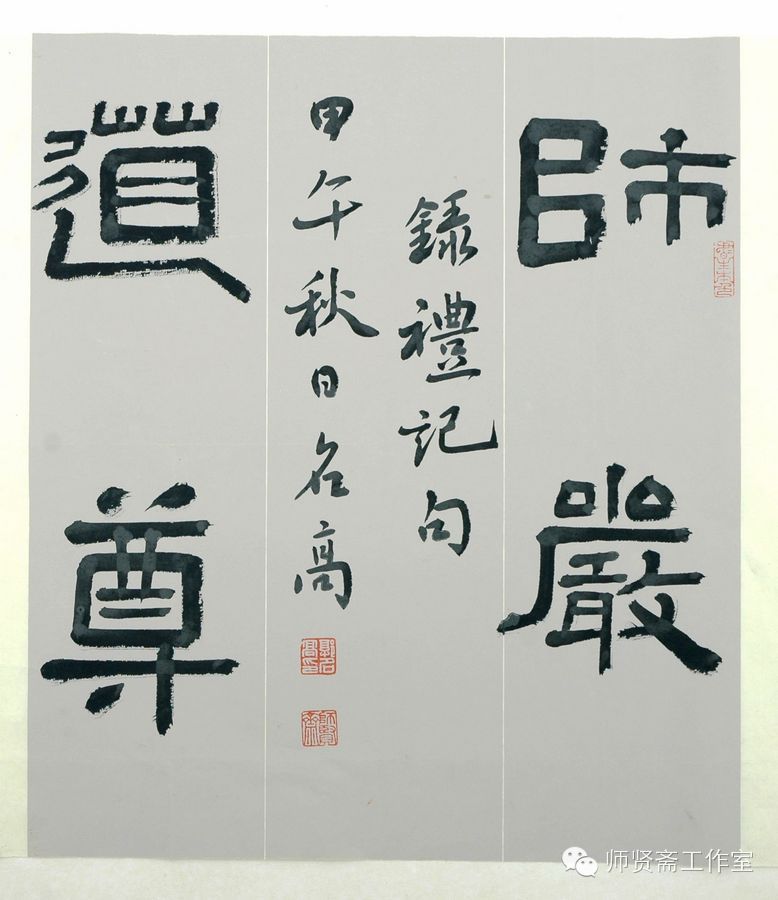 師嚴
錄禮記句
甲午秋日名高
師賢齋
道尊
师贤斋工作室